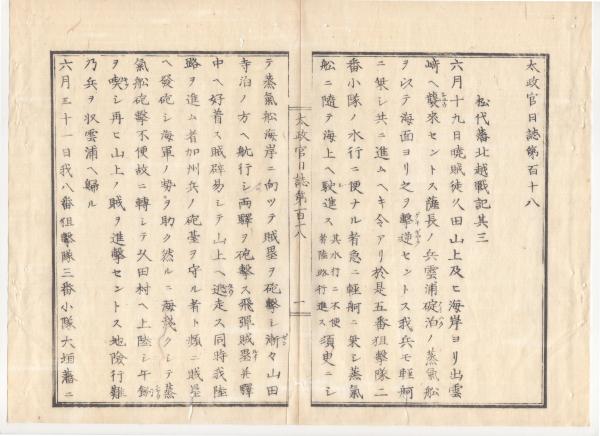 太政官日誌第百十八
松代藩北越戰記其三
六月十九日曉賊徒久田山上及ヒ海岸ヨリ出雲
崎ヘ襲來セントス薩長ノ兵雲浦碇泊ノ蒸氣船
ヲ以テ海面ヨリ之ヲ擊逆セントス我兵モ輕舸
ニ乗シ共ニ進ムヘキ令アリ於是五番狙擊隊二
番小隊ノ水行ニ便ナル者急ニ輕舸ニ乗シ蒸氣
船ニ隨テ海上ヘ駛進ス其水行ニ不便者陸路行進ス須臾ニシ
太政官日誌第百十八
一
テ蒸氣船海岸ニ向ツテ賊壘ヲ砲擊シ漸々山田
寺泊ノ方ヘ航行シ両驛ヲ砲擊ス飛彈賊壘并驛
中ヘ好着ス賊辟易シテ山上ヘ逃走ス同時我陸
路ヲ進ム者加州兵ノ砲臺ヲ守ル者ト頻ニ賊壘
ヘ發砲シ海軍ノ勢ヲ助ク然ルニ海幾クシテ蒸
氣船砲擊不便故ニ轉シテ久田村ヘ上陸シ午餉
ヲ喫シ再ヒ山上ノ賊ヲ進擊セントス地險行難
乃兵ヲ収雲浦ヘ歸ル
六月二十一日我八番狙擊隊三番小隊大垣藩ニ